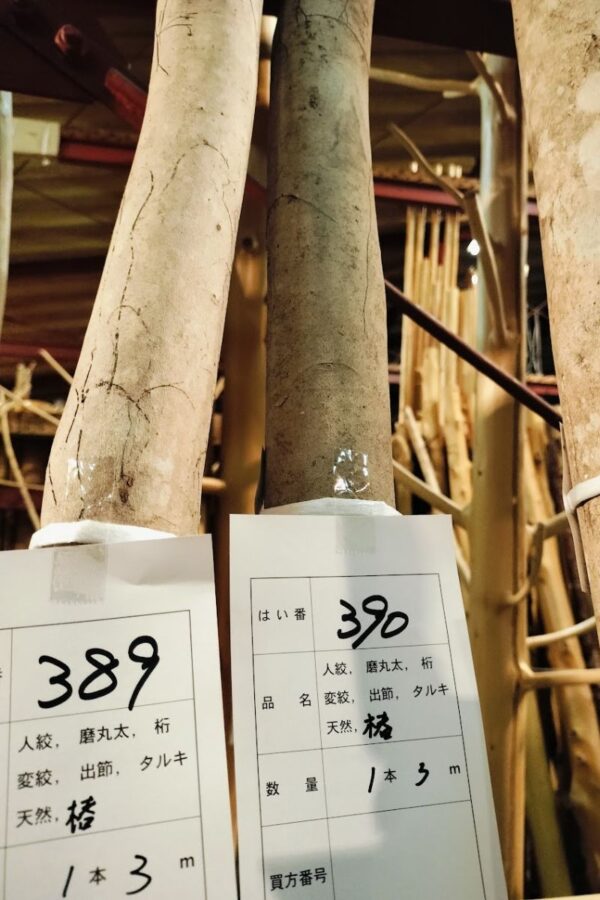 389
人絞， 磨丸太， 桁
変絞， 出節， タルキ
天然， 椿
1 本 3 m
はい番 390
品名 人絞， 磨丸太， 桁
変絞， 出節， タルキ
天然， 椿
数量 1 本 3 m
買方番号